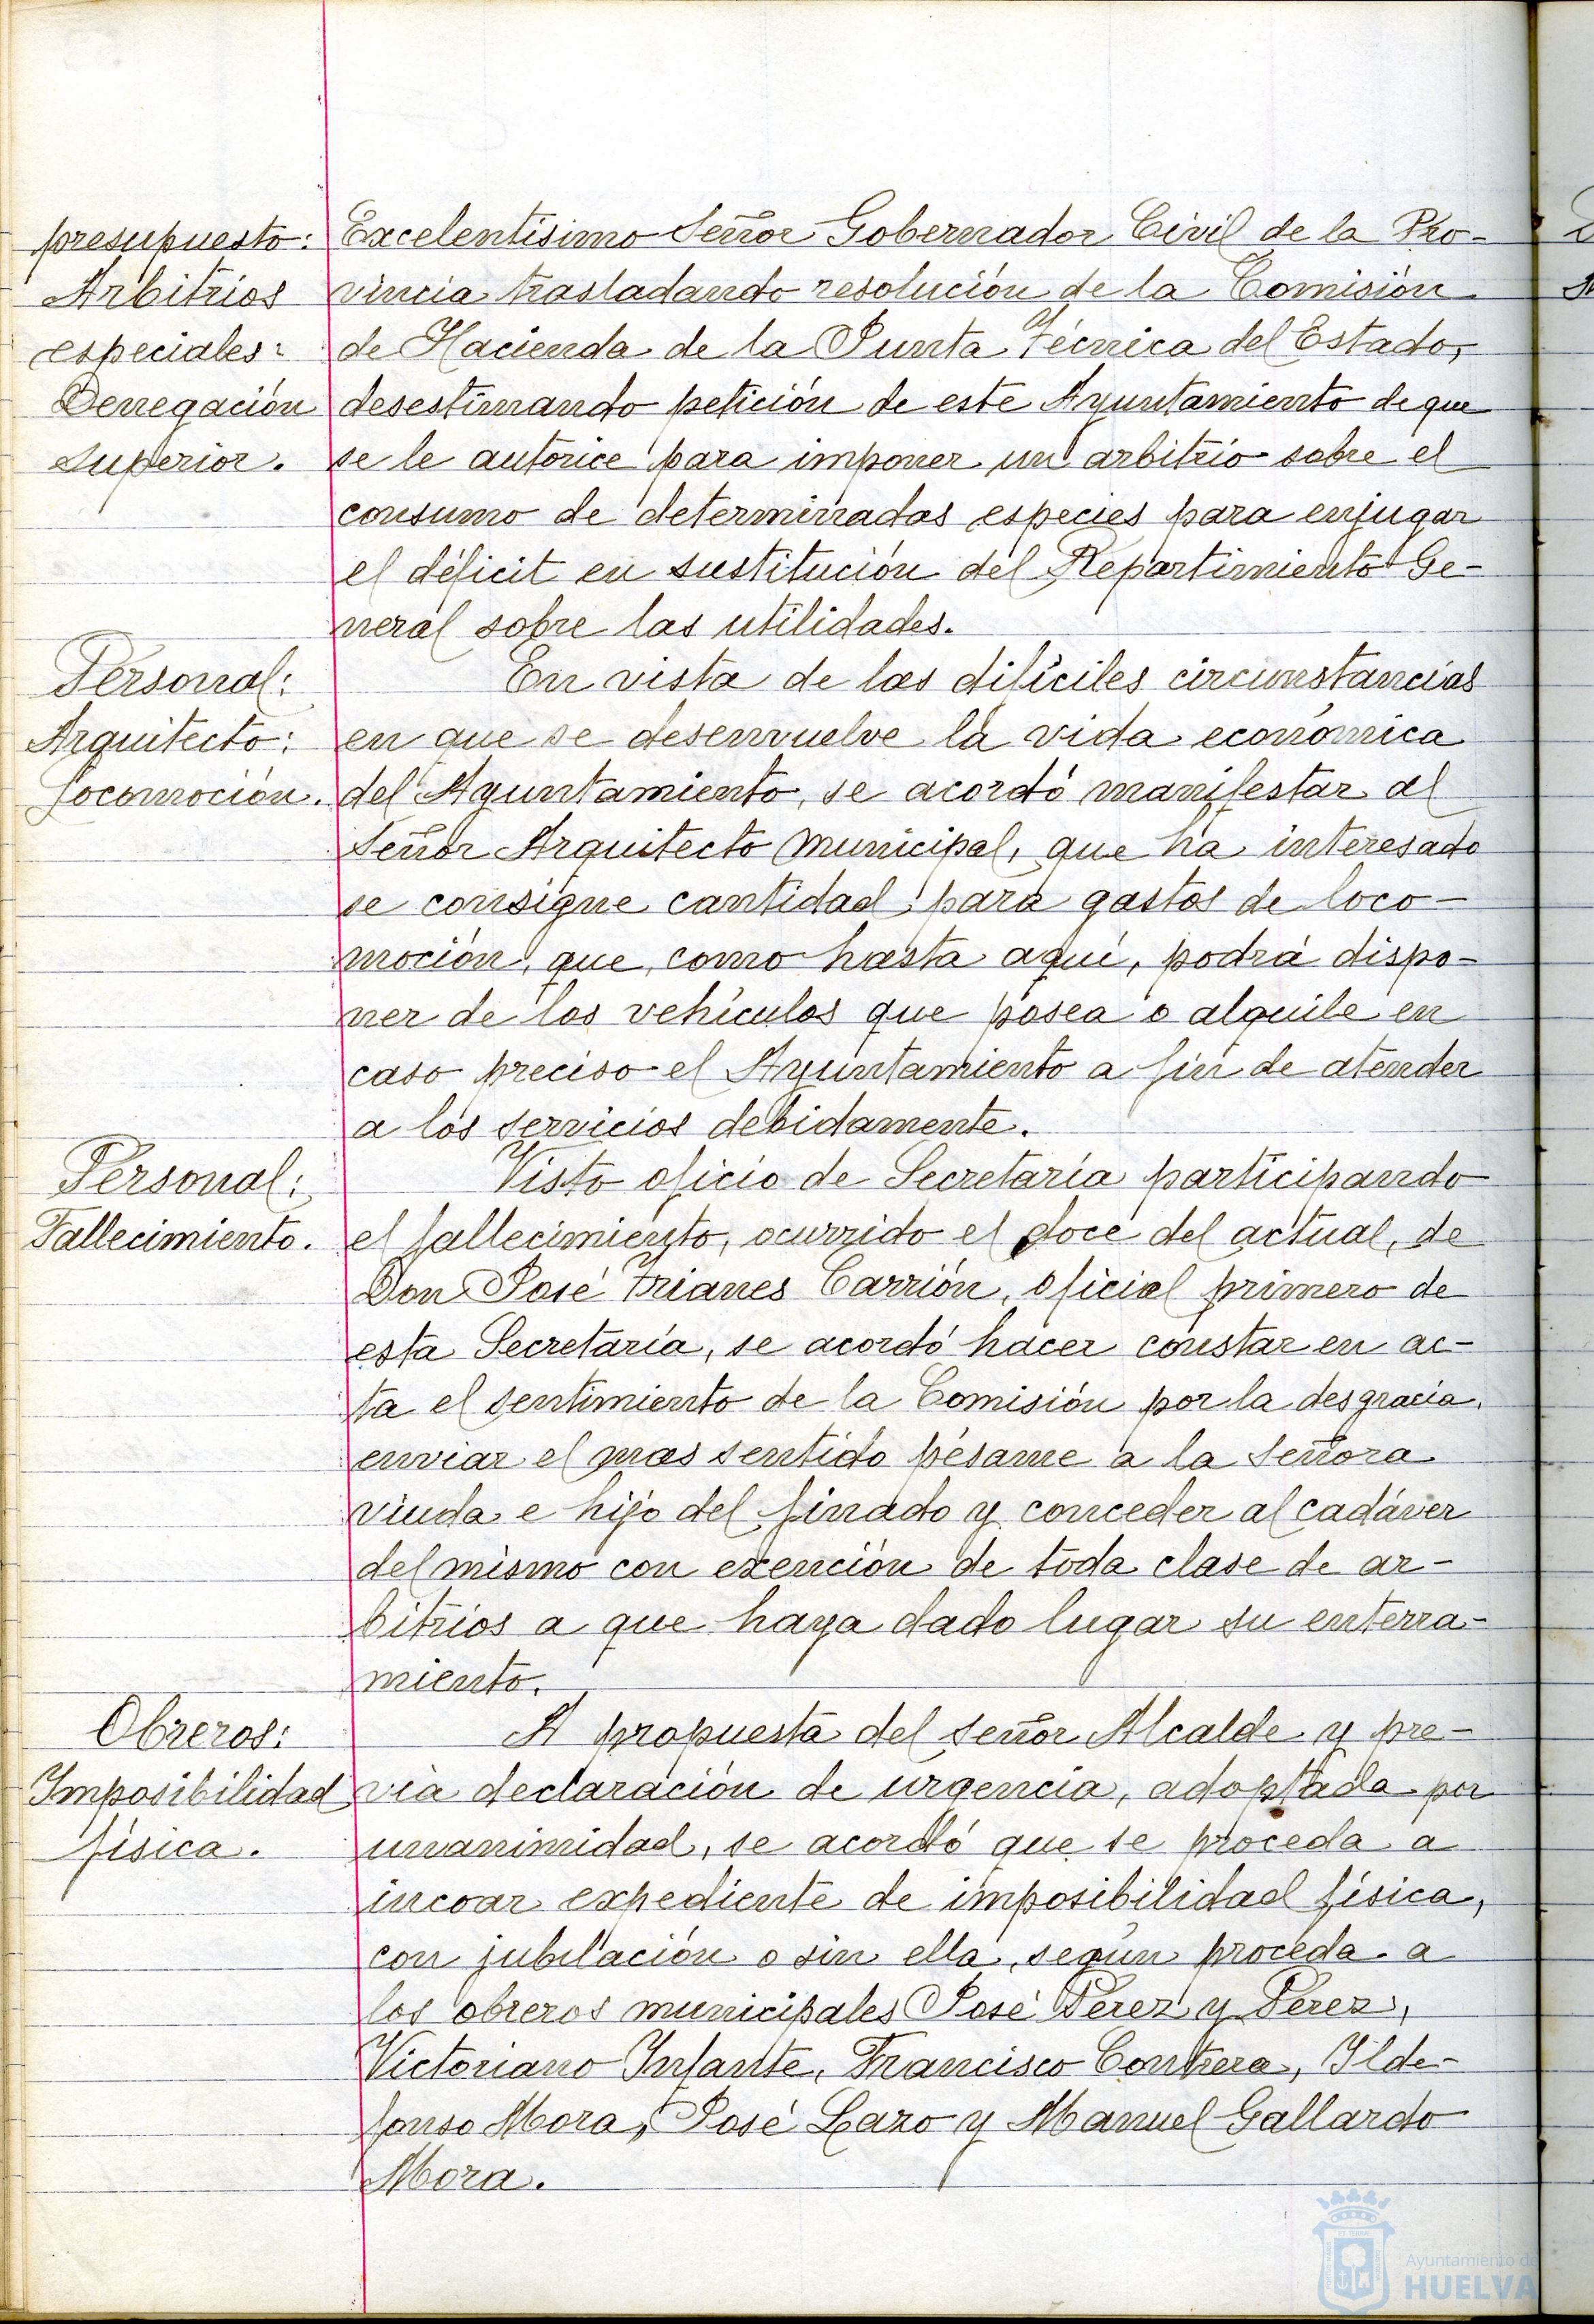 presupuesto:
Arbitrios
especiales:
Denegación
superior.
Excelentísimo Señor Gobernador Civil de la Pro-
vincia trasladando resolución de la Comisión
de Hacienda de la Junta Técnica del Estado,
desestimando petición de este Ayuntamiento de que
se le autorice para imponer un arbitrio sobre el
consumo de determinadas especies para enjugar
el déficit en sustitución del Repartimiento Ge-
neral sobre las utilidades.
Personal:
Arquitecto:
Locomoción.
En vista de las difíciles circunstancias
en que se desenvuelve la vida económica
del Ayuntamiento, se acordó manifestar al
Señor Arquitecto Municipal, que ha interesado
se consigne cantidad para gastos de loco-
moción, que, como hasta aquí, podrá dispo-
ner de los vehículos que posea o alquile en
caso preciso el Ayuntamiento a fin de atender
a los servicios debidamente.
Personal:
Fallecimiento.
Visto oficio de Secretaría participando
el fallecimiento, ocurrido el doce del actual, de
Don José Trianes Carrión, oficial primero de
esta Secretaría, se acordó hacer constar en ac-
ta el sentimiento de la Comisión por la desgracia,
enviar el mas sentido pésame a la Señora
viuda e hijo del finado y conceder al cadáver
del mismo con exención de toda clase de ar-
bitrios a que haya dado lugar su enterra-
miento.
Obreros:
Imposibilidad
física.
A propuesta del Señor Alcalde y pre-
via declaración de urgencia, adoptada por
unanimidad, se acordó que se proceda a
incoar expediente de imposibilidad física,
con jubilación o sin ella, según proceda a
los obreros municipales José Pérez y Pérez,
Victoriano Infante, Francisco Contrera, Ilde-
fonso Mora, José Lazo y Manuel Gallardo
Mora.
Ayuntamiento de
HUELVA